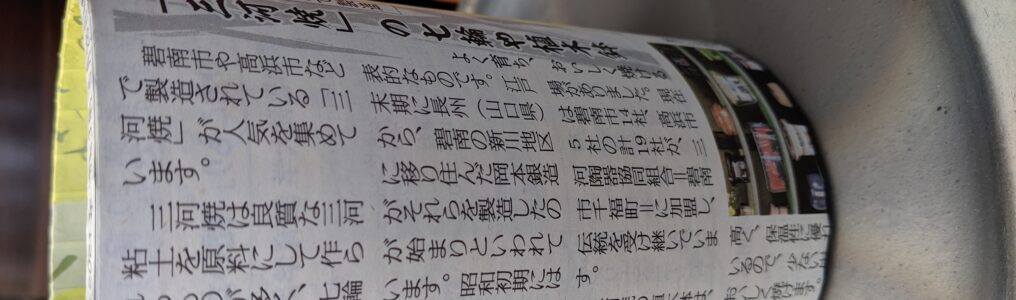 「三河焼」の七輪や植木鉢
よく育ち、おいしく焼ける
碧南市や高浜市など
で製造されている「三
河焼」が人気を集めて
います。
三河焼は良質な三河
粘土を原料にして作ら
のが多く、七輪
表的なものです。江戸
末期に長州(山口県)
から、碧南の新川地区
に移り住んだ岡本銀造
がそれらを製造したの
が始まりといわれて
います。昭和初期には
場がありました。現在
は碧南市14社、高浜市
5社の計19社が、三
河陶器協同組合=碧南
市千福町=に加盟し、
伝統を受け継いでいま
す。
高く、保温性に優
いるので、少ない
おいしく焼けます。